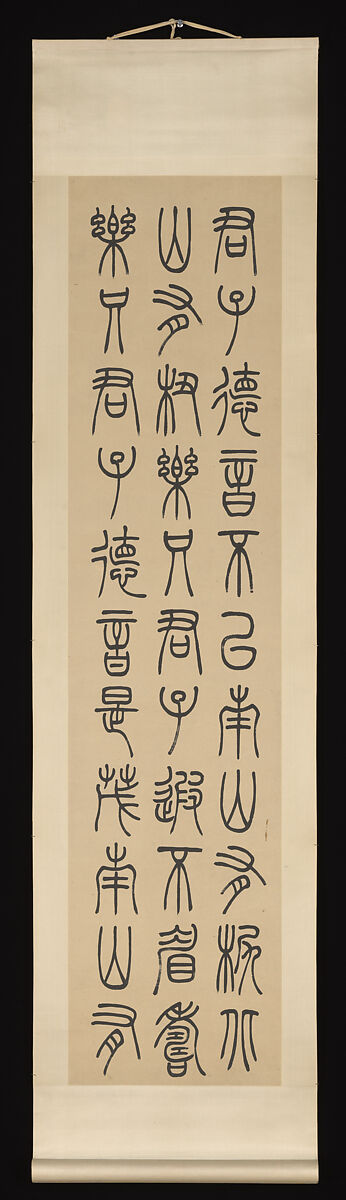 君子德音不已南山有栲北
山有杻樂只君子遐不眉壽
樂只君子德音是茂南山有